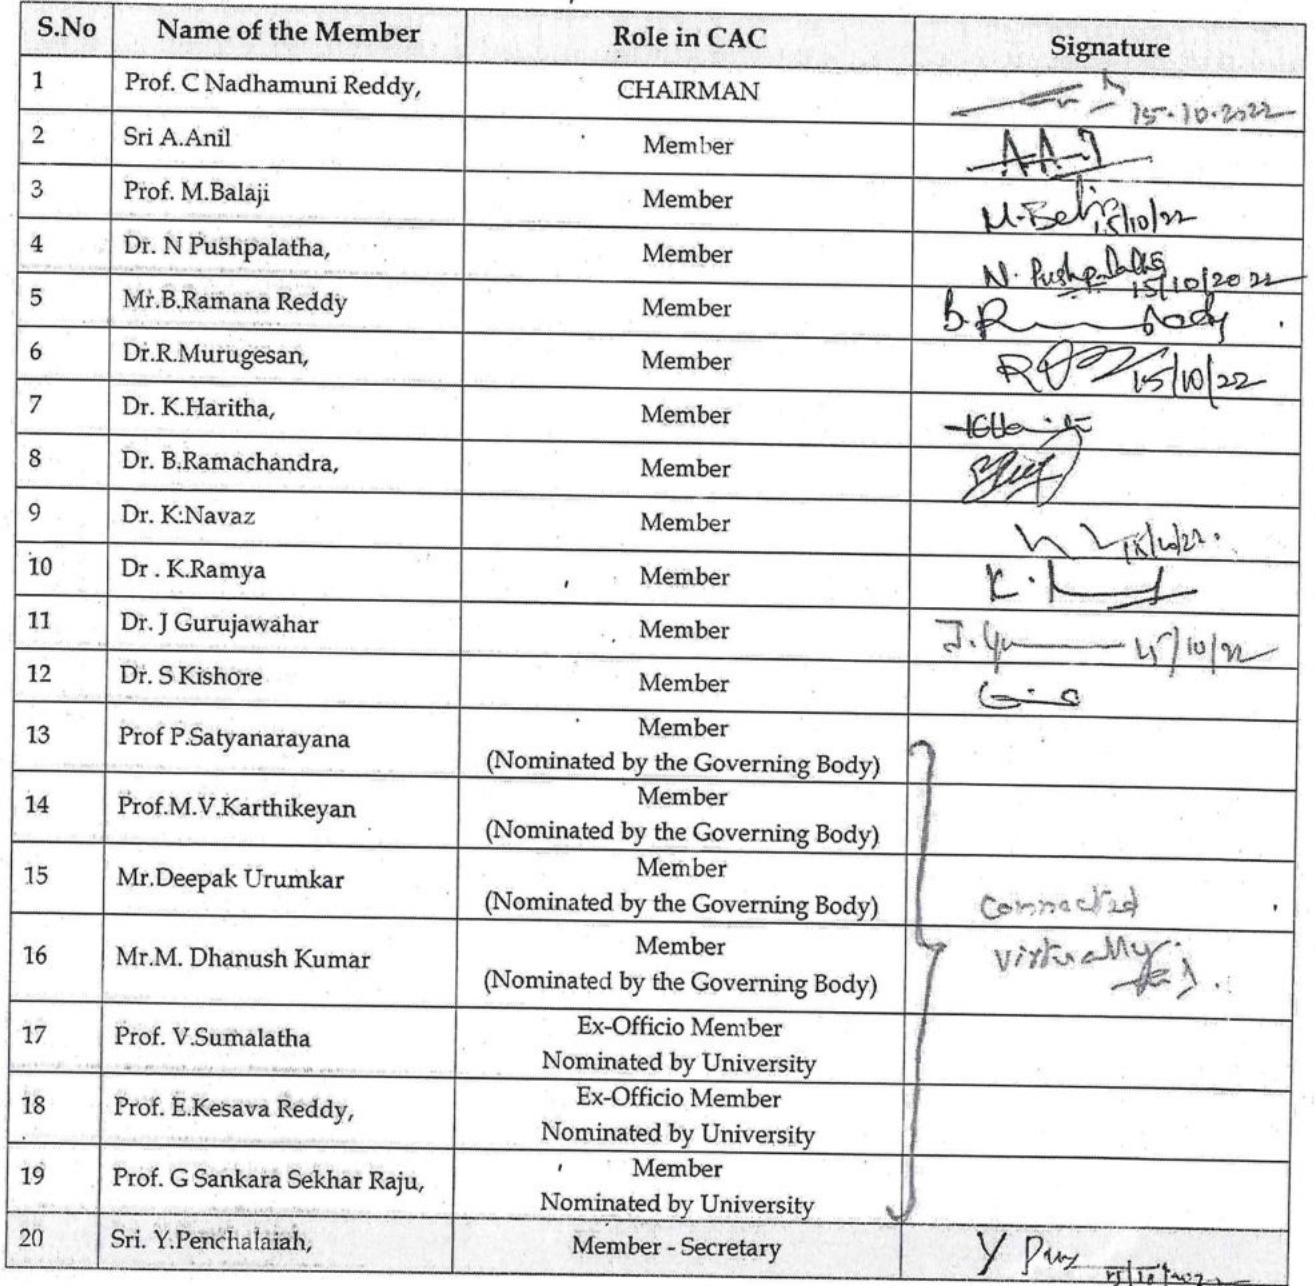 S.No Name of the Member Role in CAC Signature
1 Prof. C Nadhamuni Reddy, CHAIRMAN 15.10.2022
2 Sri A.Anil Member
3 Prof. M.Balaji Member 15/10/22
4 Dr. N Pushpalatha, Member N. Pushpalatha 15/10/2022
5 Mr.B.Ramana Reddy Member
6 Dr.R.Murugesan, Member 15/10/22
7 Dr. K.Haritha, Member
8 Dr. B.Ramachandra, Member
9 Dr. K.Navaz Member
10 Dr . K.Ramya Member
11 Dr. J Gurujawahar Member 15/10/22
12 Dr. S Kishore Member
13 Prof P.Satyanarayana Member
(Nominated by the Governing Body)
14 Prof.M.V.Karthikeyan Member
(Nominated by the Governing Body)
15 Mr.Deepak Urumkar Member
(Nominated by the Governing Body) Connected
16 Mr.M. Dhanush Kumar Member virtually.
(Nominated by the Governing Body)
17 Prof. V.Sumalatha Ex-Officio Member
Nominated by University
18 Prof. E.Kesava Reddy, Ex-Officio Member
Nominated by University
19 Prof. G Sankara Sekhar Raju, Member
Nominated by University
20 Sri. Y.Penchalaiah, Member - Secretary